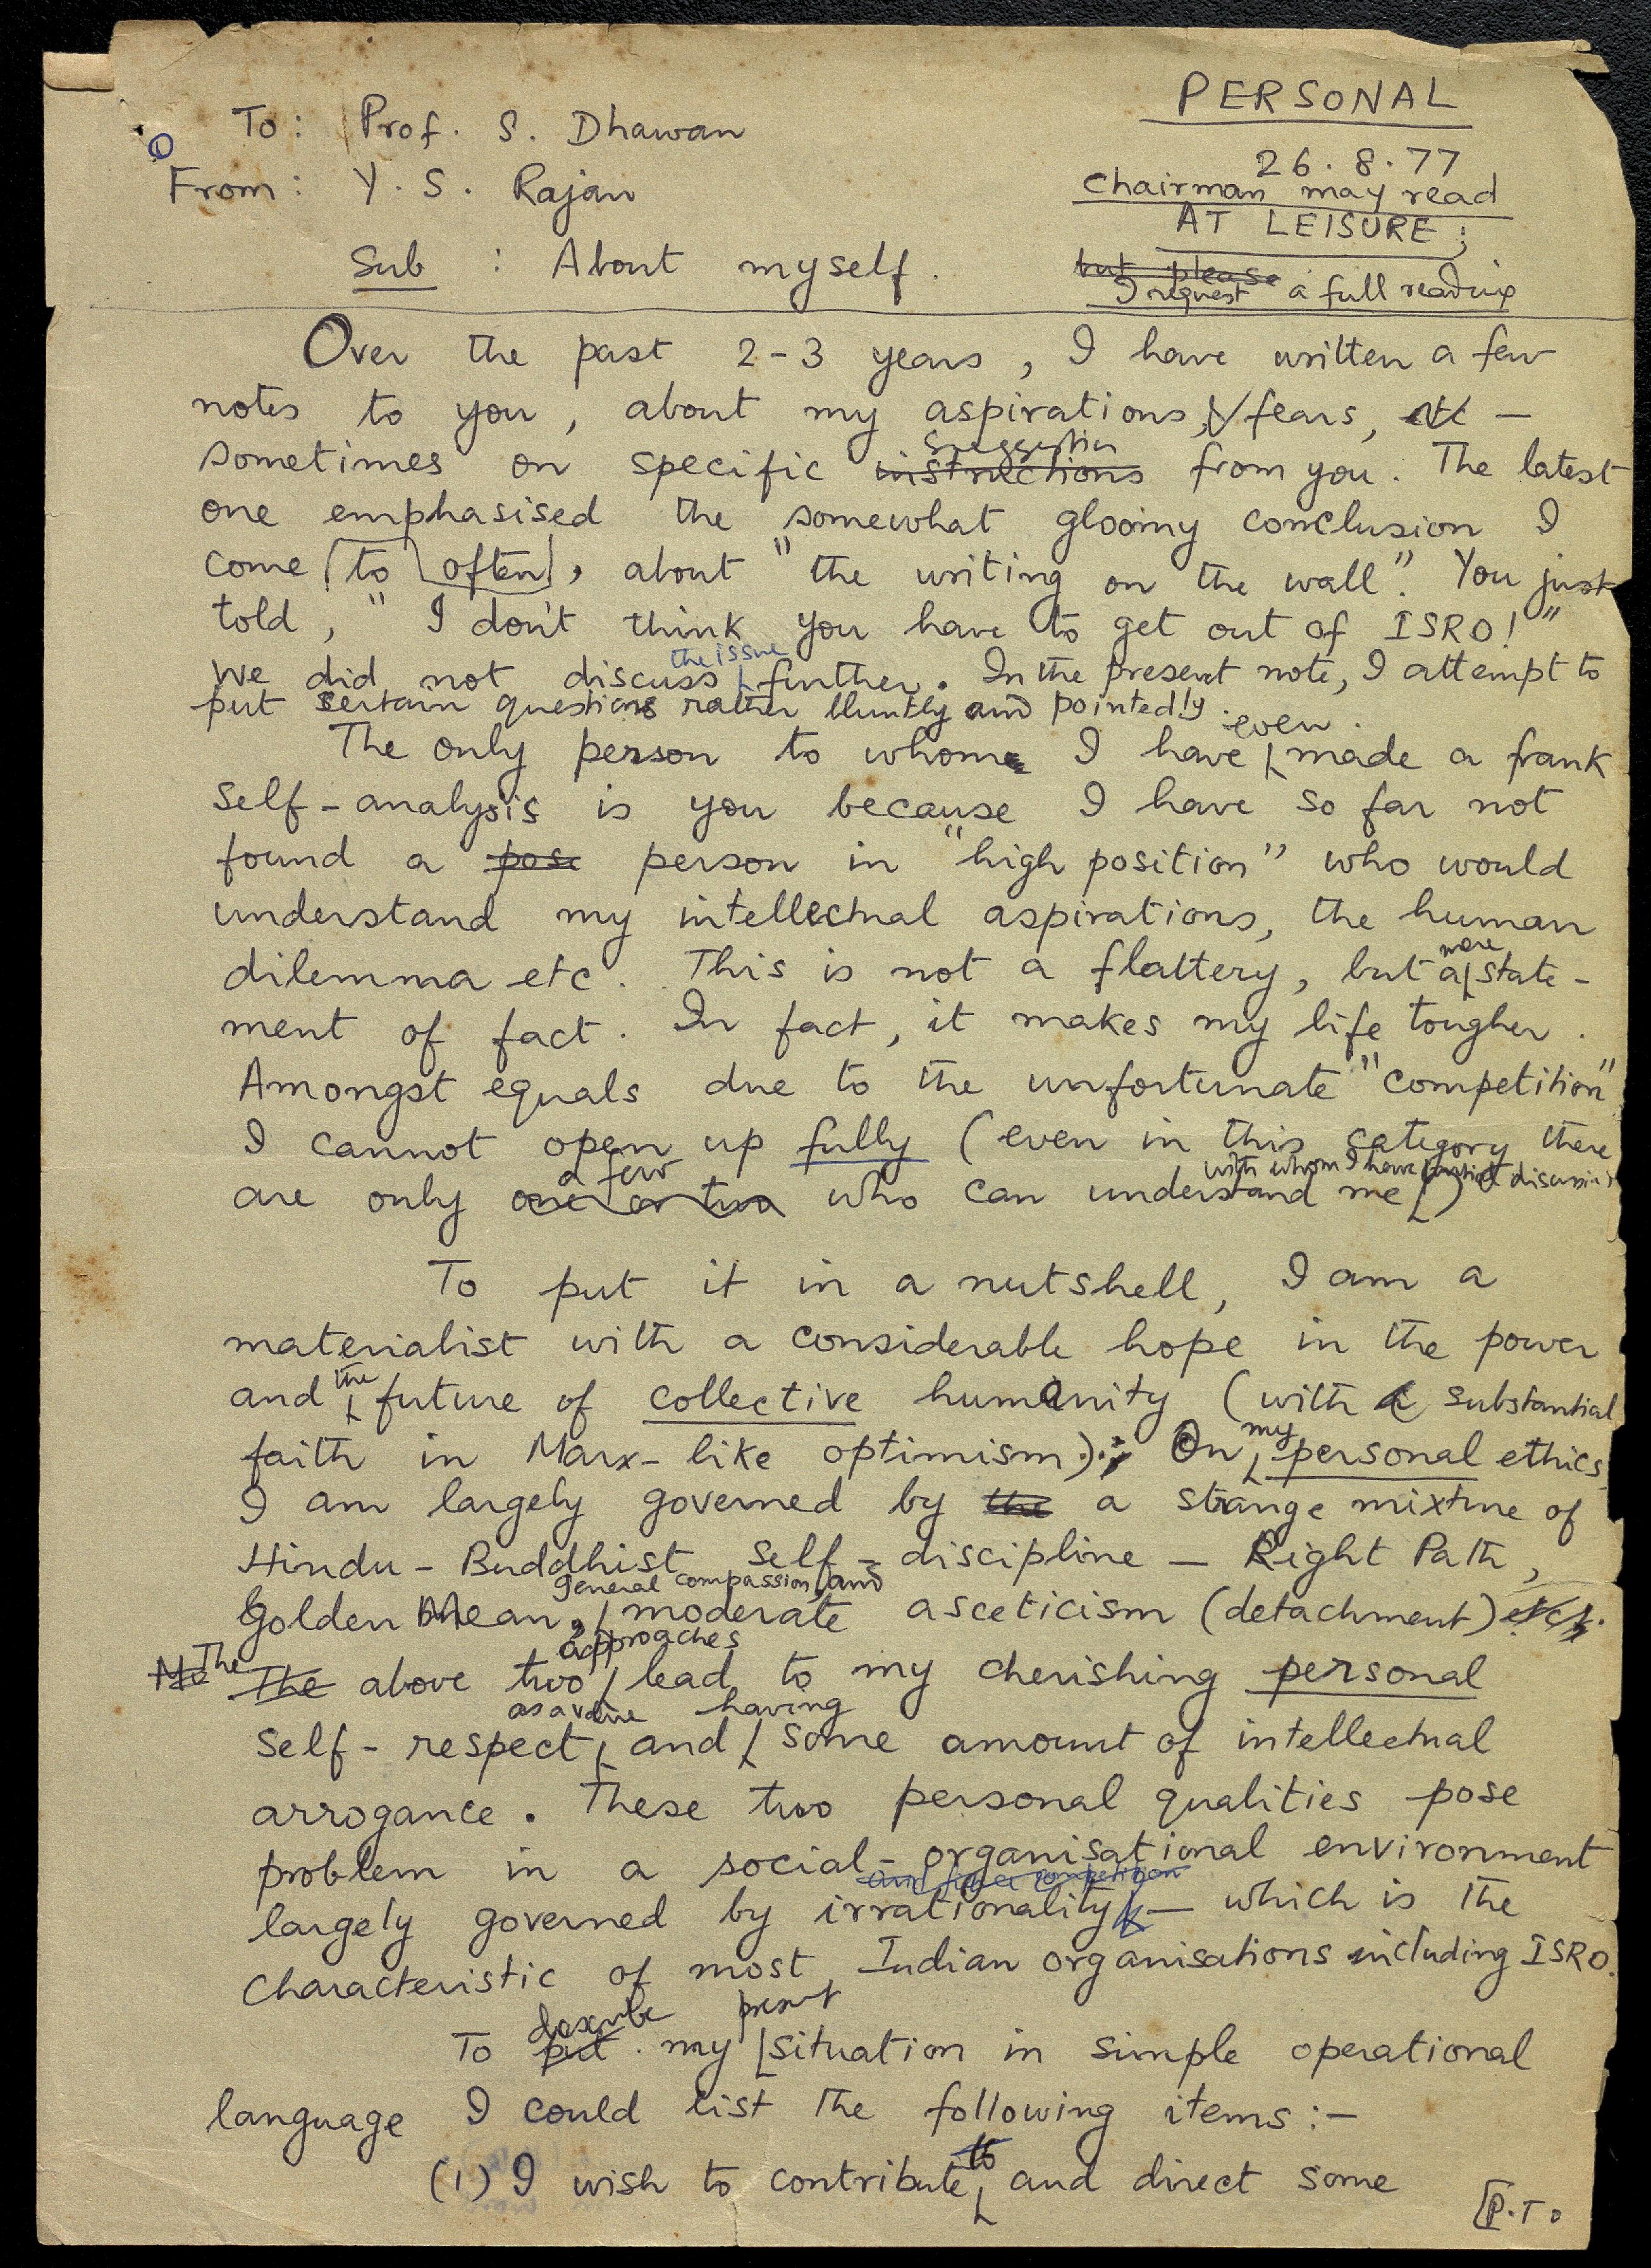 PERSONAL
To: Prof. S. Dhawan
26.8.77
From: Y. S. Rajan
Chairman may read
AT LEISURE;
Sub : About myself.
but please
I request a full reading
Over the past 2-3 years, I have written a few
notes to you, about my aspirations, fears, etc —
suggestion
sometimes on specific instructions from you. The latest
one emphasised the somewhat gloomy conclusion I
come to often, about "the writing on the wall". You just
told, "I don't think you have to get out of ISRO!"
the issue
We did not discuss further. In the present note, I attempt to
put certain questions rather bluntly and pointedly.
even
The only person to whom I have made a frank
self-analysis is you because I have so far not
found a pose person in "high position" who would
understand my intellectual aspirations, the human
mere
dilemma etc. This is not a flattery, but a state-
ment of fact. In fact, it makes my life tougher.
Amongst equals due to the unfortunate "competition"
I cannot open up fully (even in this category there
a few with whom I have discussion
are only one or two who can understand me)
To put it in a nutshell, I am a
materialist with a considerable hope in the power
the
and future of collective humanity (with a substantial
my
faith in Marx-like optimism); On personal ethics
I am largely governed by the a strange mixture of
Hindu-Buddhist self-discipline — Right Path,
general compassion, and
Golden Mean, moderate asceticism (detachment) etc.
approaches
The The above two lead to my cherishing personal
as a value having
self-respect and some amount of intellectual
arrogance. These two personal qualities pose
problem in a social-organisational environment
and competition
largely governed by irrationality — which is the
characteristic of most Indian organisations including ISRO.
describe present
To put my situation in simple operational
language I could list the following items:-
to
(1) I wish to contribute and direct some
[P.T.O